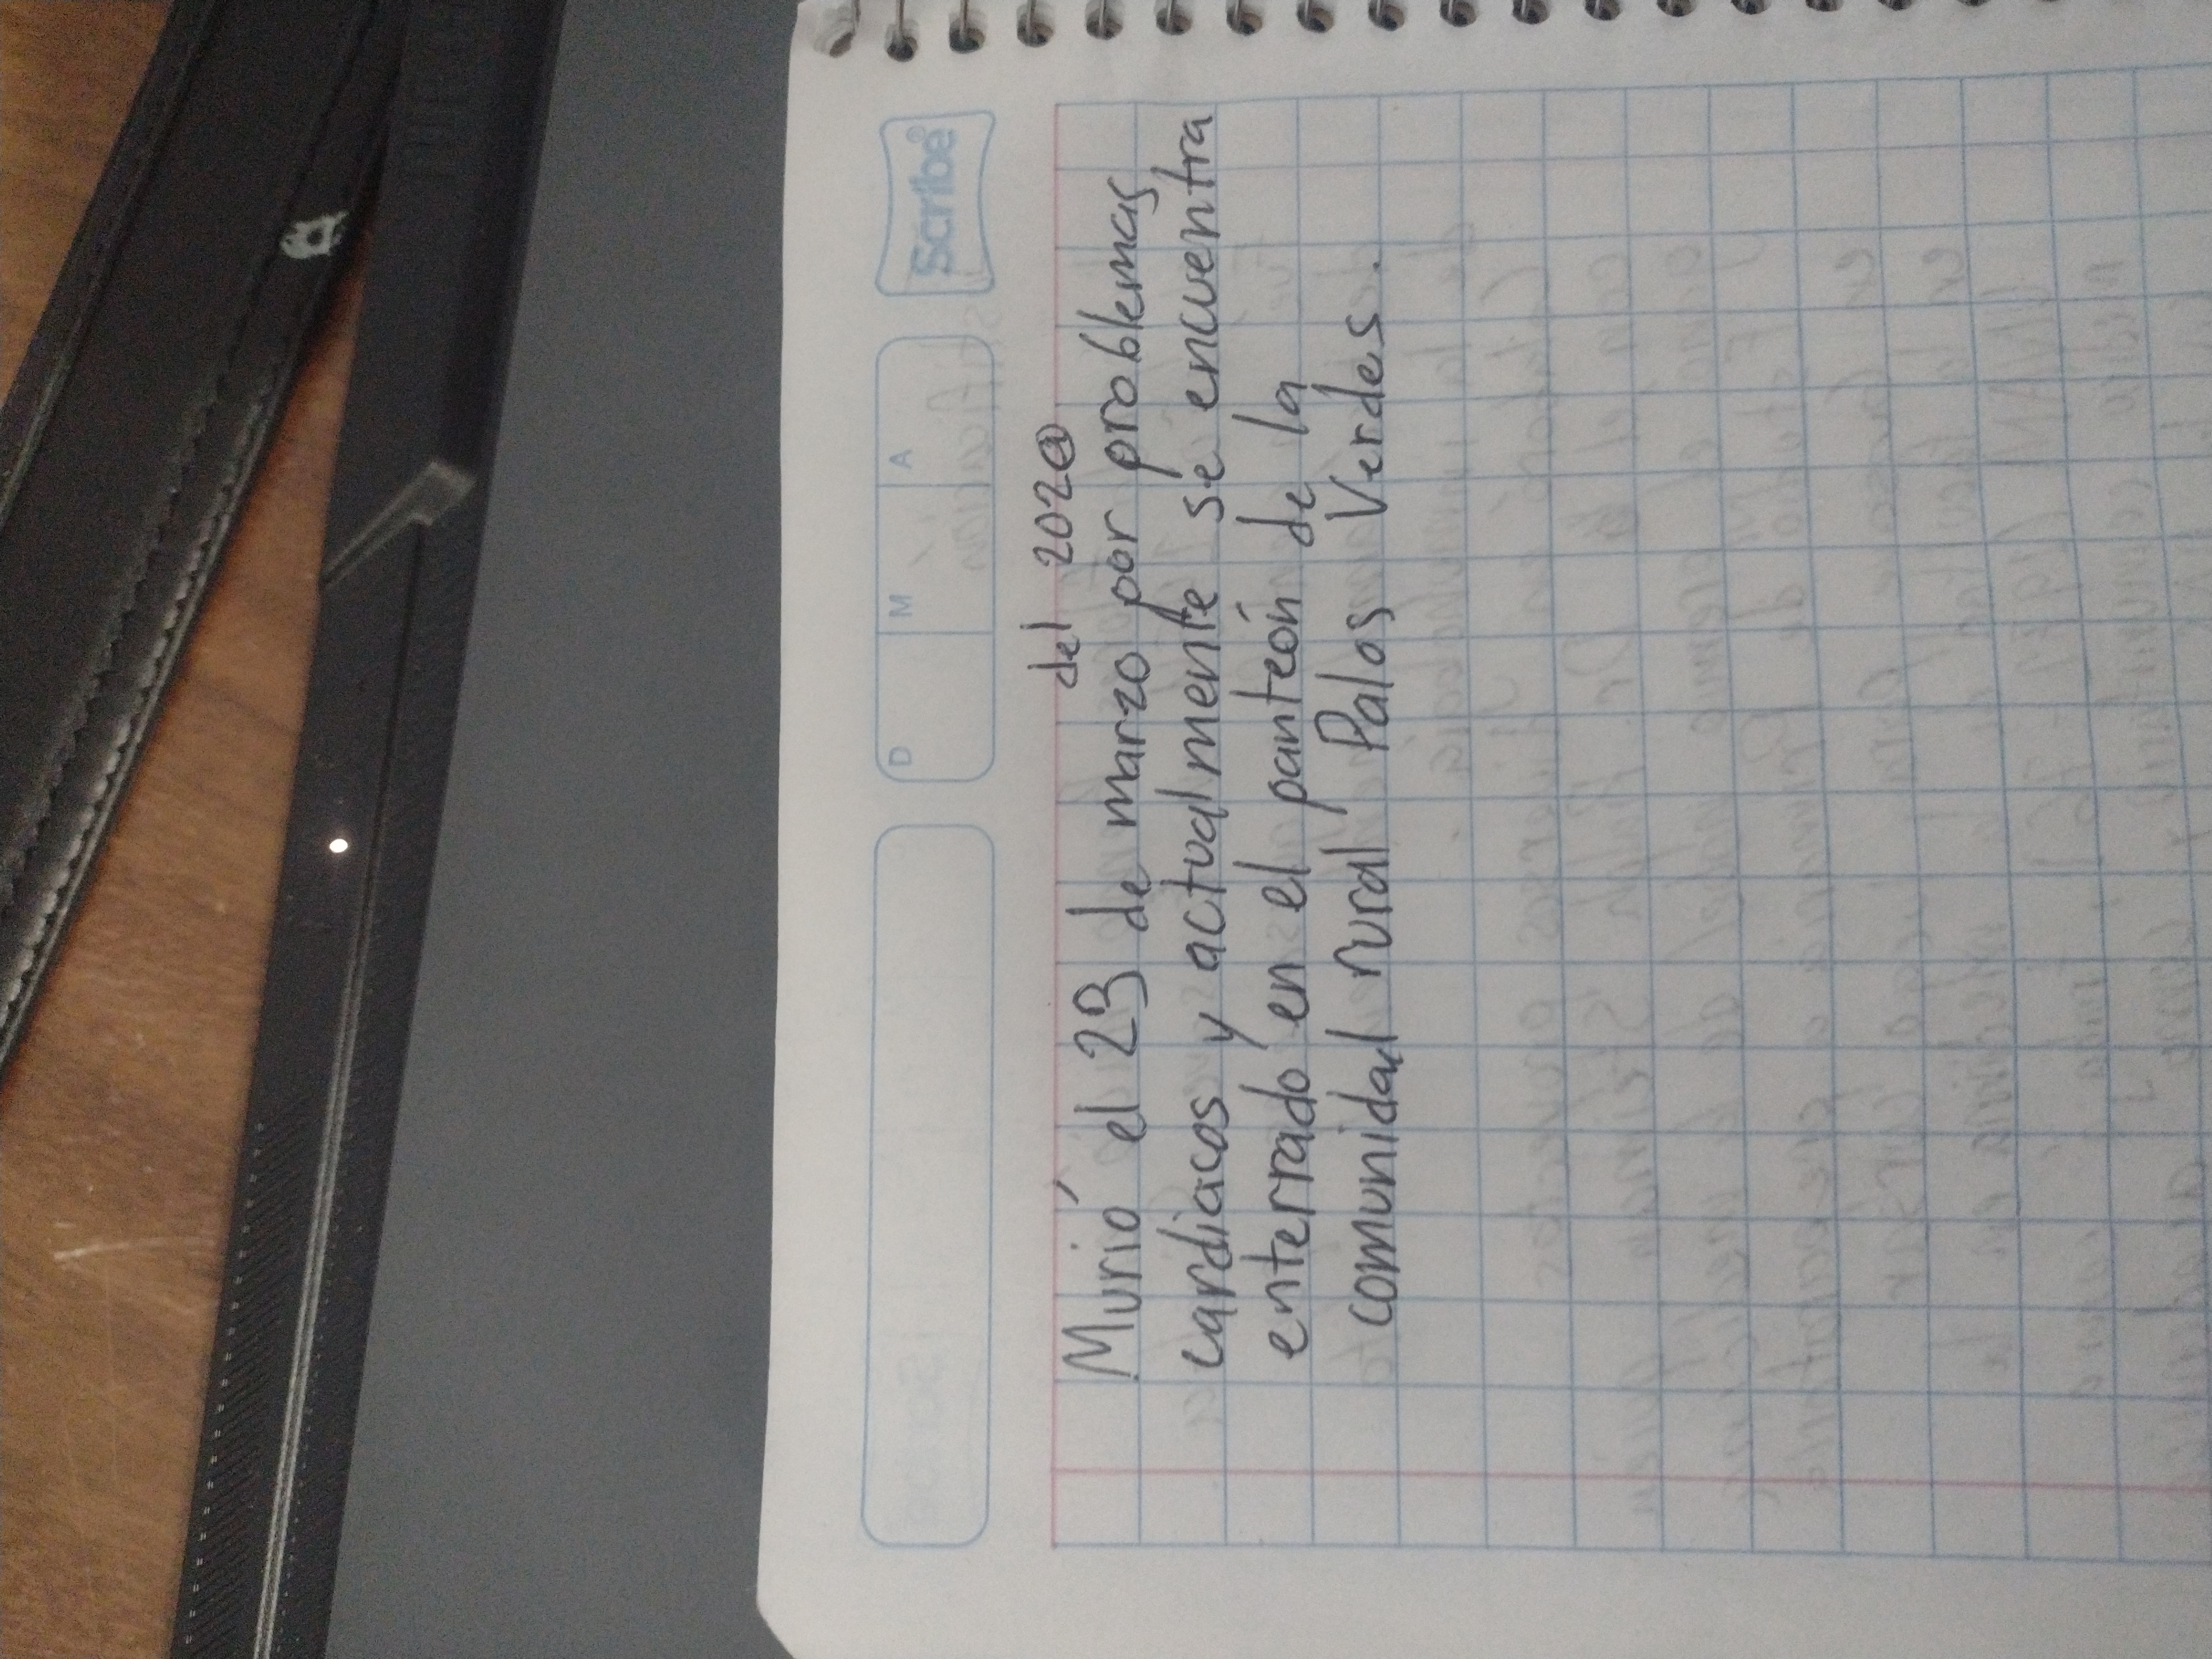 Scribe®
D M A
del 2020
Murió el 23 de marzo por problemas
cardiacos y actualmente se encuentra
enterrado en el panteón de la
comunidad rural Palos Verdes.